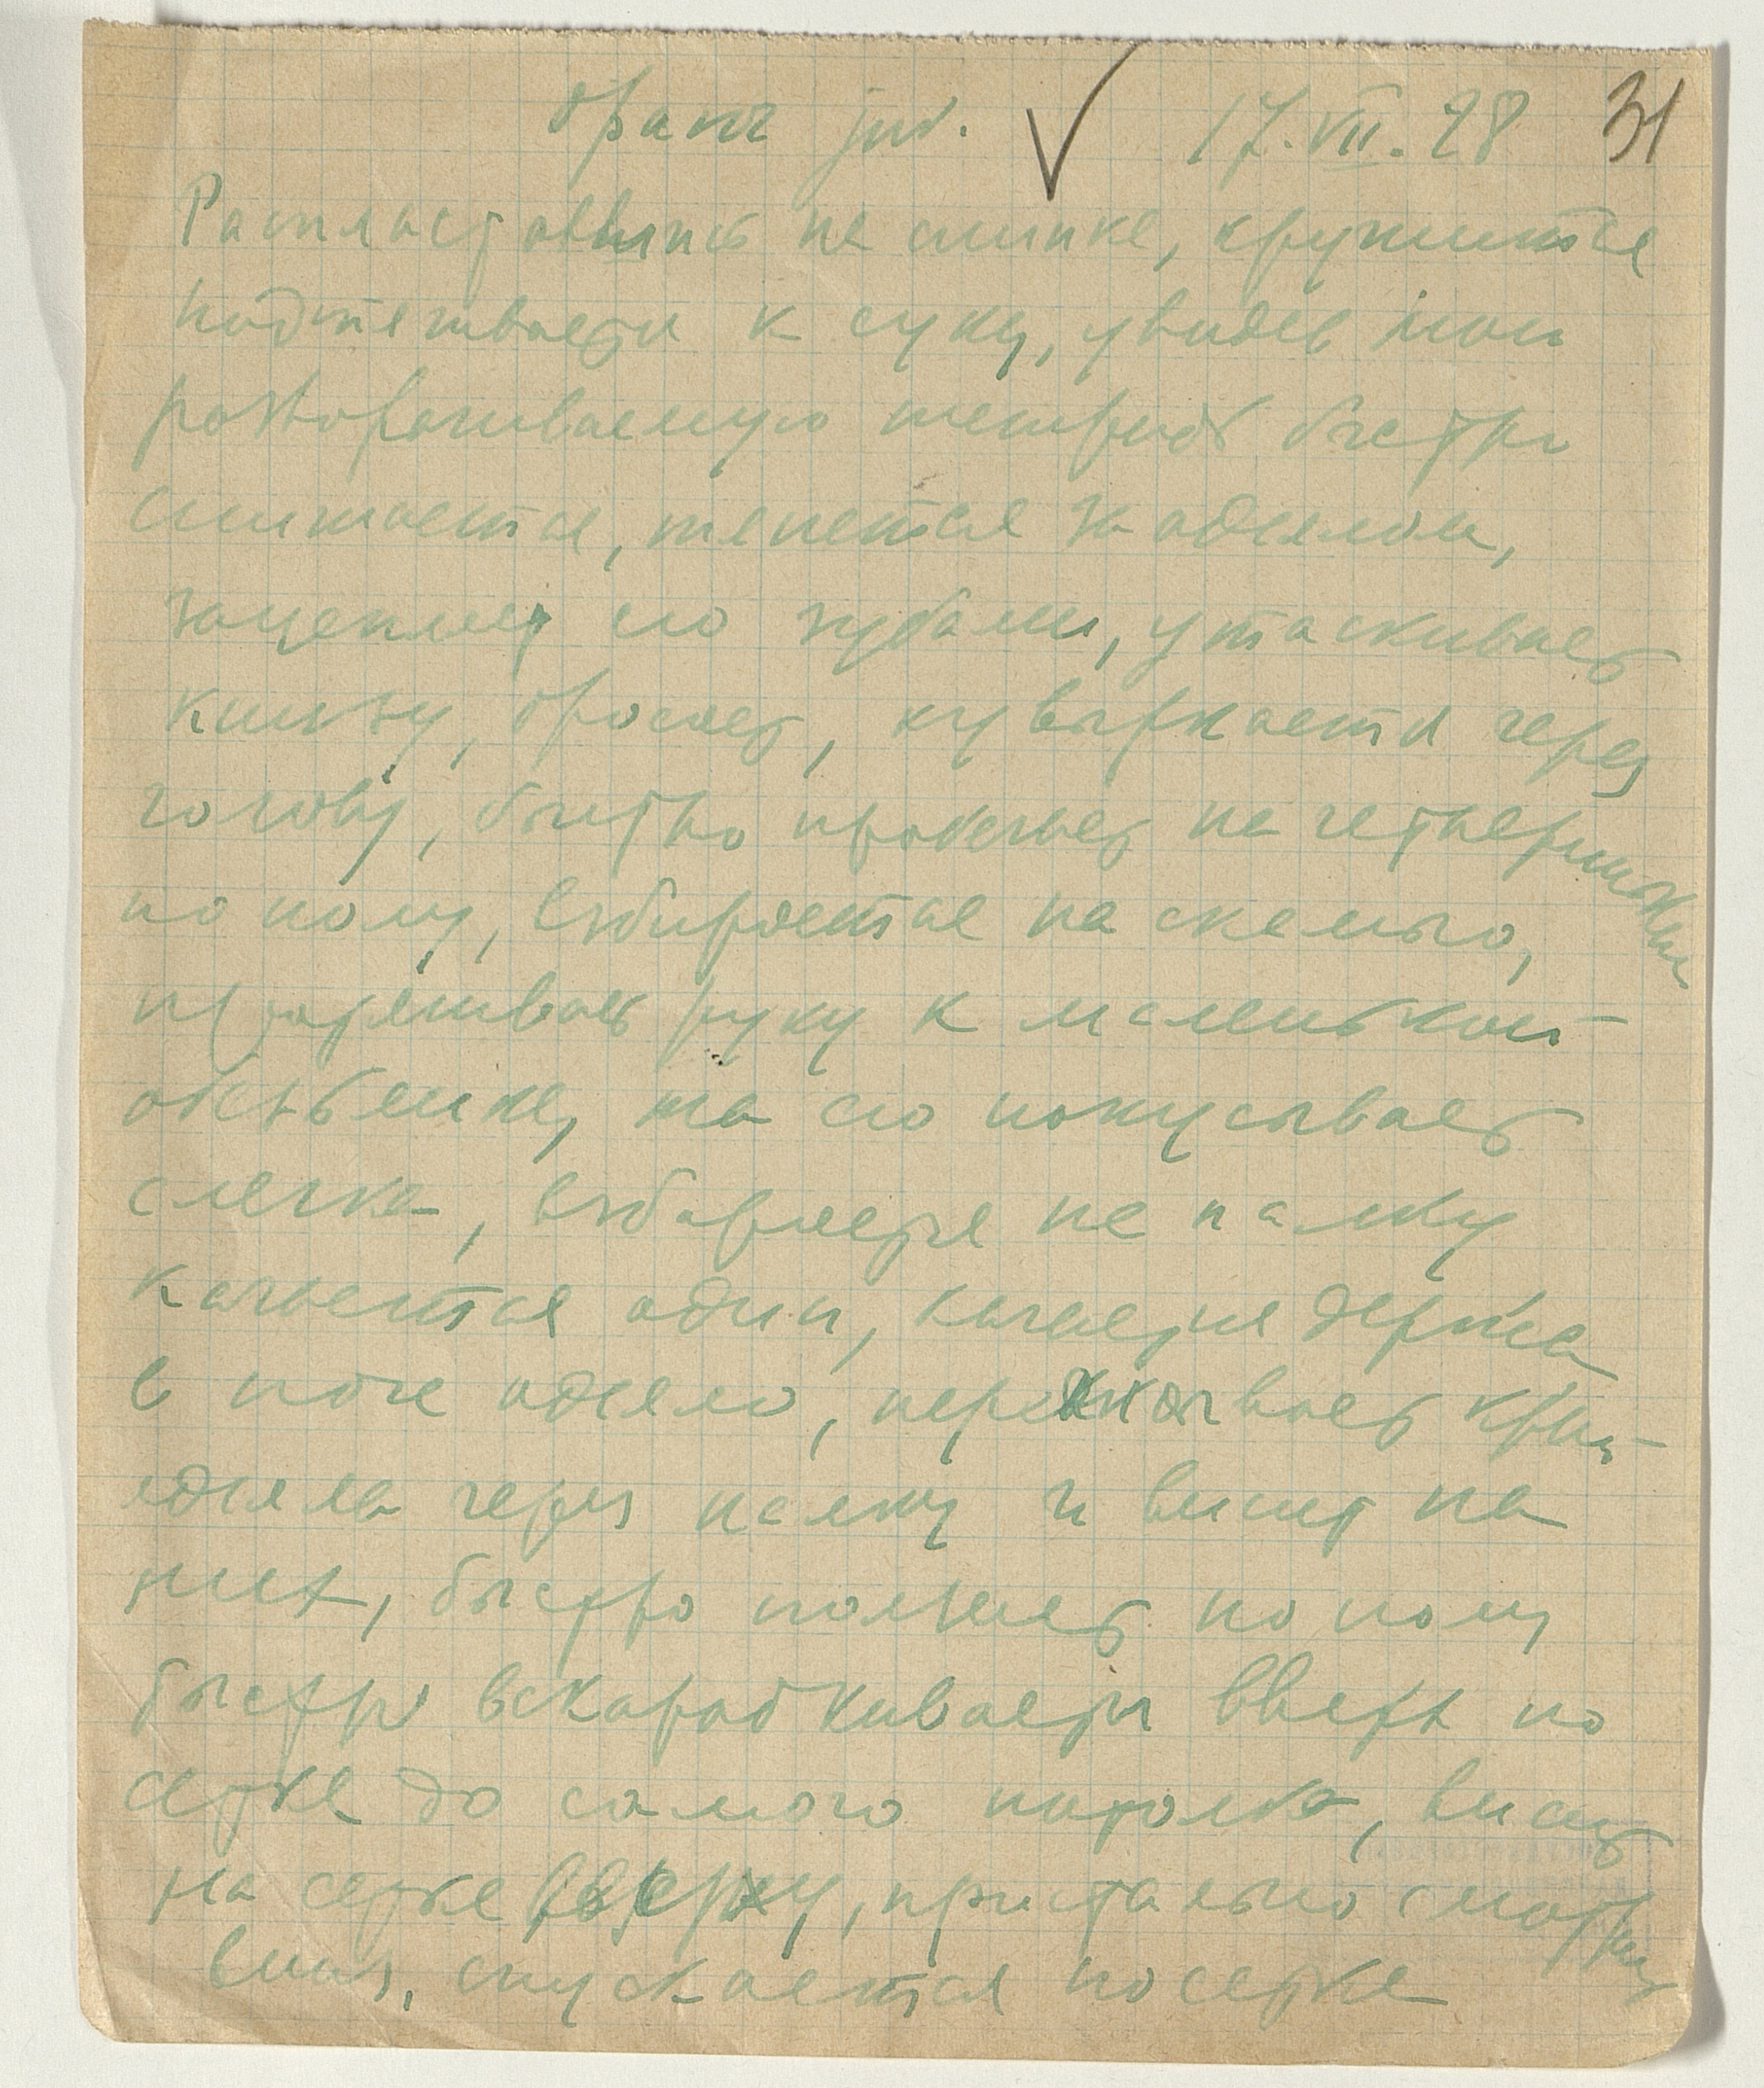 Оранг juv. 17.VII.28 31
Распластавшись на спинке, кружится
подтягивается к суку, увидев мою
разворачиваемую тетрадь быстро
снижается, тянется за одеялом,
зацепляет его зубами, утаскивает
книзу, бросает, кувыркается через
голову, быстро пробегает на четвереньках
по полу, взбирается на скамью,
протягивает руку к маленькой
обезьянке, та его покусывает
слегка, взбирается на палку
качается один, качается держа
в ноге одеяло, перекидывает край
одеяла через палку и висит на
них, быстро ползает по полу
быстро вскарабкивается вверх по
сетке до самого потолка, висит
на сетке вверху, пристально смотрит
вниз, спускается по сетке